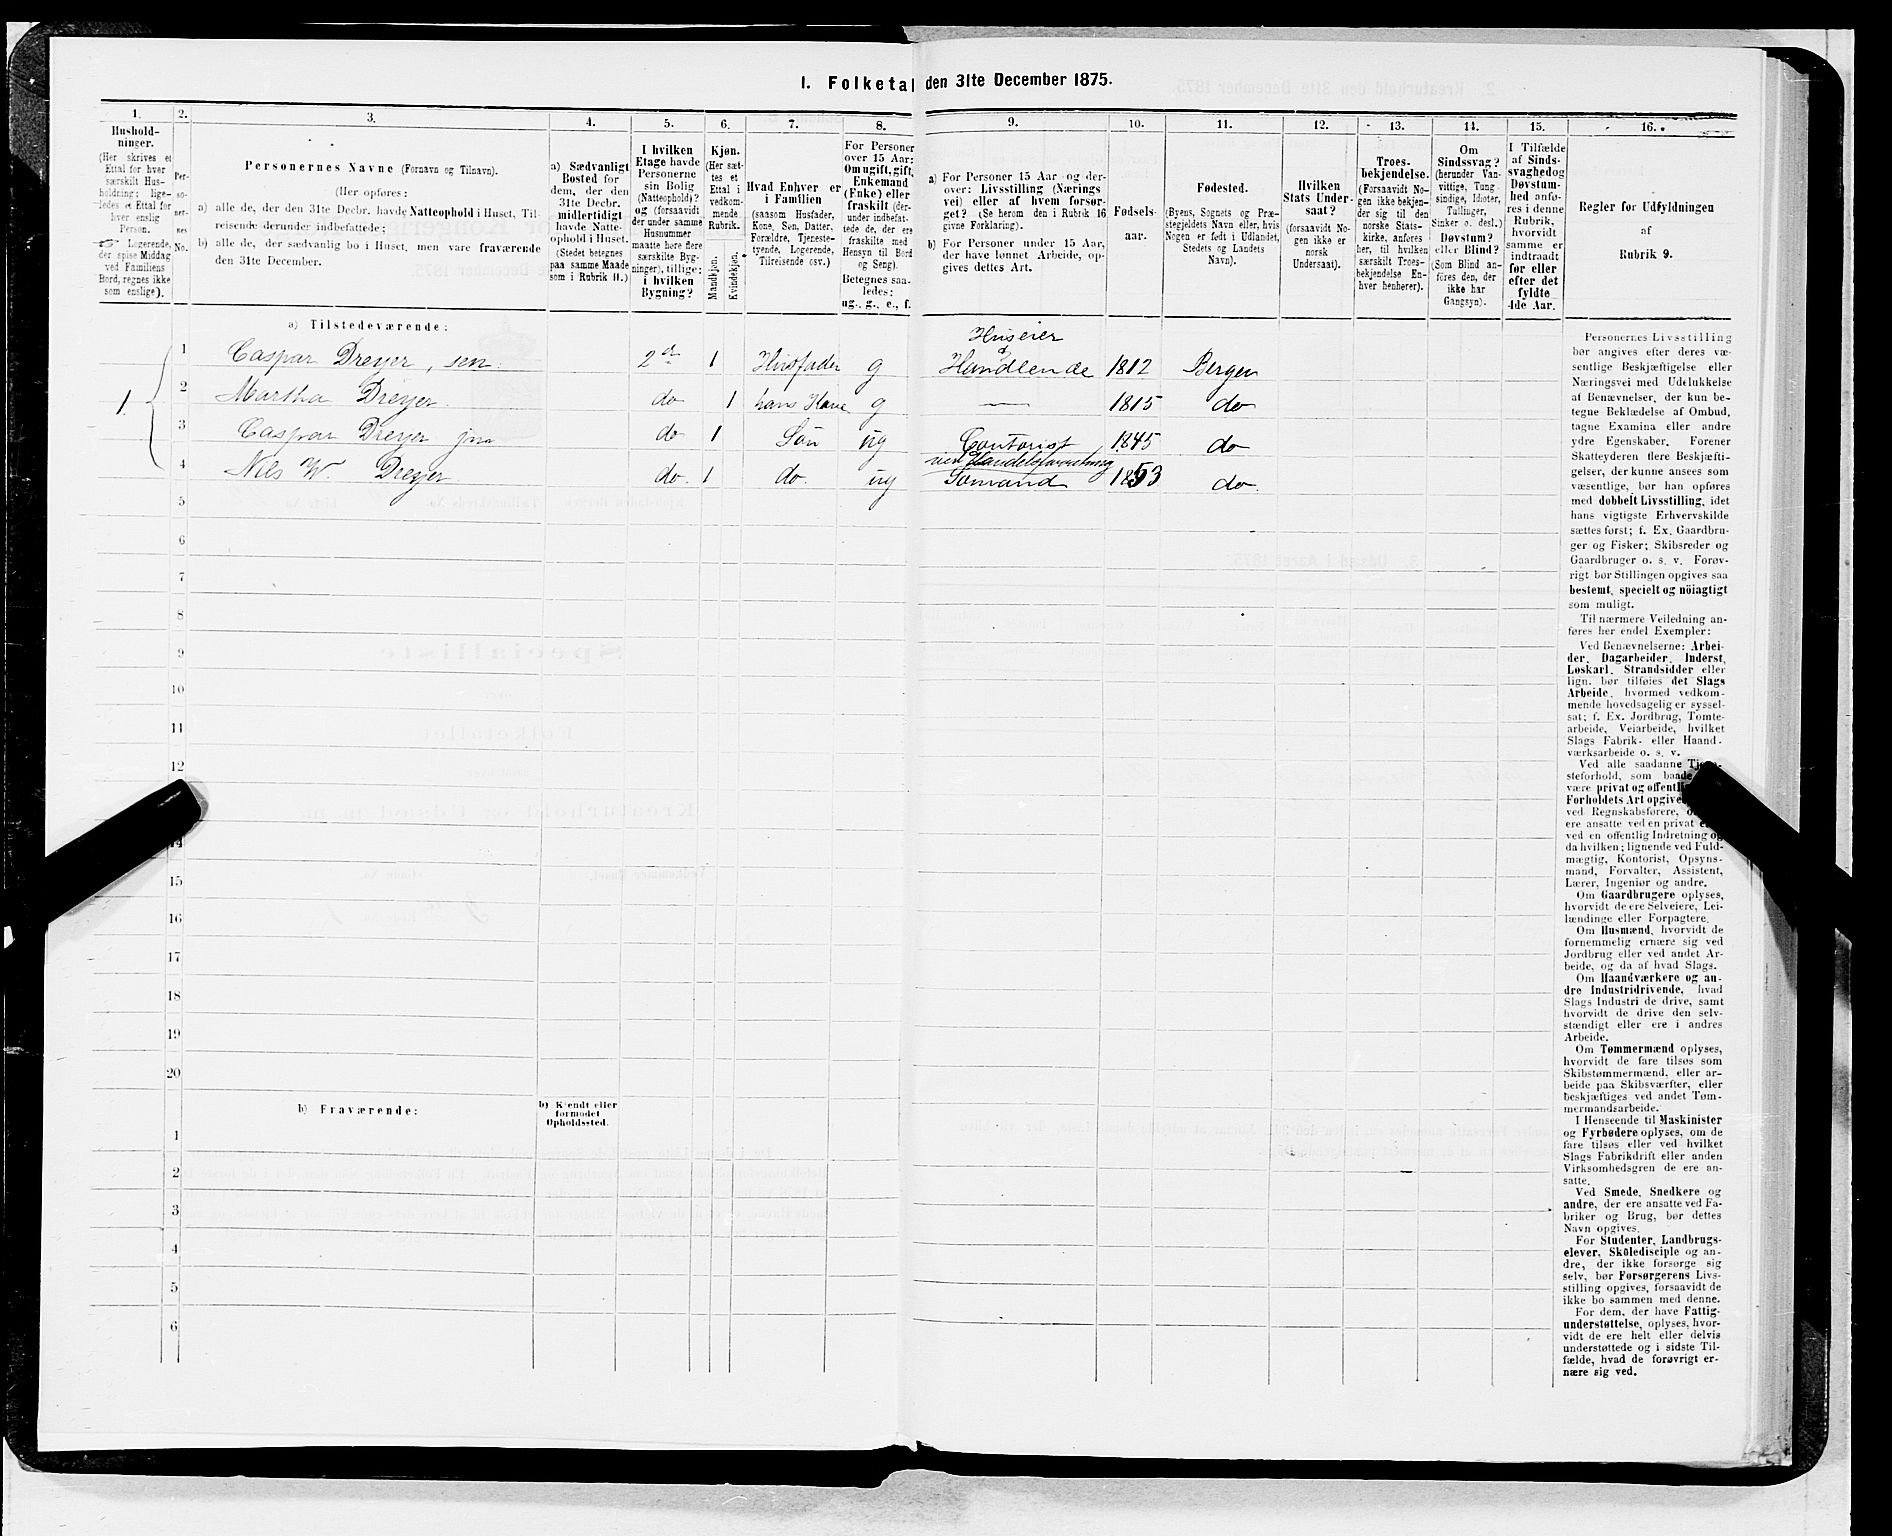 1. Folketal den 31te December 1875.
1.
Hushold-
ninger.
(Her skrives et
Ettal for hver
særskilt Hus-
holdning; lige-
ledes et Ettal for
hver enslig
Person.
Logerende,
der spise Middag
ved Familiens
Bord, regnes ikke
som enslige).
2.
Per-
so-
ner-
nes
No.
3.
Personernes Navne (Fornavn og Tilnavn).
(Her opføres:
a) alle de, der den 31te Decbr. havde Natteophold i Huset, Til-
reisende derunder indbefattede;
b) alle de, der sædvanlig bo i Huset, men vare fraværende
den 31te December.
4.
a) Sædvanligt
Bosted for
dem, der den
31te Decbr.
midlertidigt
havde Natte-
ophold i Huset.
(Stedet betegnes
paa samme Maade
som i Rubrik 11.)
5.
I hvilken
Etage havde
Personerne
sin Bolig
(Natteophold)?
og (forsaavidt
der under samme
Husnummer
maatte høre flere
særskilte Byg-
ninger), tillige:
i hvilken
Bygning?
6.
Kjøn.
(Her sæt-
tes et
Ettal i
vedkom-
mende
Rubrik.
Mandkjøn.
Kvindekjøn.
7.
Hvad Enhver er
i Familien
(saasom Husfader,
Kone, Søn, Datter,
Forældre, Tjeneste-
tyende, Logerende,
Tilreisende osv.)
8.
For Personer
over 15 Aar:
Om ugift, gift,
Enkemand
(Enke) eller
fraskilt (der-
under indbefat-
tede de, der ere
fraskilte med
Hensyn til Bord
og Seng).
Betegnes saa-
ledes:
ug., g., e., f.
9.
a) For Personer 15 Aar og der-
over: Livsstilling (Nærings
vei) eller af hvem forsør-
get? (Se herom den i Rubrik 16
givne Forklaring).
b) For Personer under 15 Aar,
der have lønnet Arbeide, op-
gives dettes Art.
10.
Fødsels-
aar.
11.
Fødested.
(Byens, Sognets og Præ-
stegjeldets Navn eller, hvis
Nogen er født i Udlandet,
Stedets og Landets
Navn).
12.
Hvilken
Stats Under-
saat?
(forsaavidt No-
gen ikke er
norsk
Undersaat).
13.
Troes-
bekjendelse.
(Forsaavidt No-
gen ikke bekjen-
der sig til den
norske Stats-
kirke, anføres
her, til hvilken
særskilt Troes-
bekjendelse En-
hver henhører).
14.
Om
Sindssvag?
(herunder Van-
vittige, Tung
sindige, Idioter,
Tullinger,
Sinker o. desl.)
Døvstum?
eller Blind?
(Som Blind an-
føres den, der
ikke har
Gangsyn).
15.
I Tilfælde
af Sinds-
svaghed og
Døvstum-
hed anfø-
res i denne
Rubrik,
hvorvidt
samme er
indtraadt
før eller
efter det
fyldte
4de Aar.
16.
Regler for Udfyldningen
af
Rubrik 9.
a) Tilstedeværende:
1. 1 Caspar Dreyer, sen. 2de 1 Husfader g Huseier & Handlende 1812 Bergen
2 Martha Dreyer do 1 hans Kone g — 1815 do
3 Caspar Dreyer jnr do 1 Søn ug Contorist ved Handelsforretning 1845 do
4 Nils W. Dreyer do. 1 do. ug Sømand 1853 do.
5
6
7
8
9
10
11
12
14
15
16
17
18
19
20
b) Fraværende:
b) Kjendt eller
formodet
Opholdssted.
1
2
3
4
5
6
Personernes Livsstilling
bør angives efter deres væ-
sentlige Beskjæftigelse eller
Næringsvei med Udelukkelse
af Benævnelser, der kun be-
tegne Beklædelse af Ombud,
tagne Examina eller andre
ydre Egenskaber. Forener
Skatteyderen flere Beskjæfti-
gelser, der kunne ansees som
væsentlige, bør han opføres
med dobbelt Livsstilling, idet
hans vigtigste Erhvervskilde
sættes først; f. Ex. Gaardbru-
ger og Fisker; Skibsreder og
Gaardbruger o. s. v. Forøv-
rigt bør Stillingen opgives saa
bestemt, specielt og nöiagtigt
som muligt.
Til nærmere Veiledning an-
føres her endel Exempler:
Ved Benævnelserne: Arbei-
der, Dagarbeider, Inderst,
Løskarl, Strandsidder eller
lign. bør tilføies det Slags
Arbeide, hvormed vedkom-
mende hovedsagelig er syssel-
sat; f. Ex. Jordbrug, Tomte-
arbeide, Veiarbeide, hvilket
Slags Fabrik- eller Haand-
værksarbeide o. s. v.
Ved alle saadanne
steforhold, som
være privat og
Forholdets Art
ved Regnskabsførere,
ere ansatte ved en privat
ved en offentlig Indretning og
da hvilken; lignende ved Fuld-
mægtig, Kontorist, Opsyns-
mand, Forvalter, Assistent,
Lærer, Ingeniør og andre.
Om Gaardbrugere oplyses,
hvorvidt de ere Selveiere, Lei-
lændinge eller Forpagtere.
Om Husmænd, hvorvidt de
fornemmelig ernære sig ved
Jordbrug eller ved andet Ar-
beide, og da af hvad Slags.
Om Haandværkere og an-
dre Industridrivende, hvad
Slags Industri de drive, samt
hvorvidt de drive den selv-
stændigt eller ere i andres
Arbeide.
Om Tømmermænd oplyses,
hvorvidt de fare tilsøs som
Skibstømmermænd, eller ar-
beide paa Skibsværfter, eller
beskjæftiges ved andet Tøm-
mermandsarbeide.
I Henseende til Maskinister
og Fyrbødere oplyses, om de
fare tilsøs eller ved hvilket
Slags Fabrikdrift eller anden
Virksomhedsgren de ere an-
satte.
Ved Smede, Snedkere og
andre, der ere ansatte ved Fa-
briker og Brug, bør dettes
Navn opgives.
For Studenter, Landbrugs-
elever, Skoledisciple og an-
dre, der ikke forsørge sig
selv, bør Forsørgerens Livs-
stilling opgives, forsaavidt de
ikke bo sammen med denne.
For dem, der have Fattig-
understøttelse, oplyses, hvor-
vidt de ere helt eller delvis
understøttede og i sidste Til-
fælde, hvad de forøvrigt er-
nære sig ved.